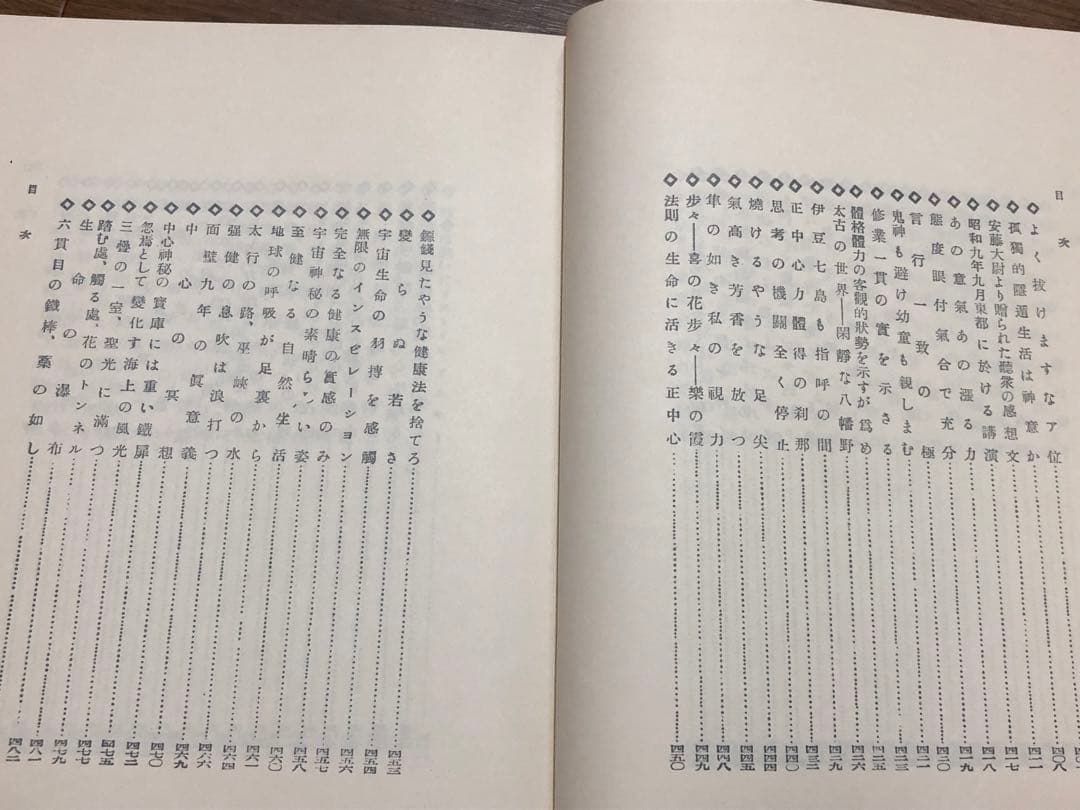 目次
◇よく拔けますなア位
◇孤獨的隱遁生活は神意か……四〇八
◇安藤大尉より贈られた聽衆の感想文……四一一
◇昭和九年九月東都に於ける講演……四一七
◇あの意氣あの漲る力……四一八
◇態度眼付氣合で充分……四一九
◇言行一致の極……四二〇
◇鬼神も避け幼童も親しまむ……四二一
◇修業一貫の實を示さる……四二三
◇體格體力の客觀的狀勢を示すが爲め……四二五
◇太古の世界──閑靜な八幡野……四二六
◇伊豆七島も指呼の間……四二九
◇正中心力體得の刹那……四三二
◇思考の機關全く停止……四四〇
◇燒けるやうな足尖……四四四
◇氣高き芳香を放つ……四四五
◇隼の如き私の視力……四四八
◇步々──喜の花步々──樂の霞……四四九
◇法則の生命に活きる正中心……四五〇
目次
◇鐚錢見たやうな健康法を捨てろ……四五三
◇變らぬ若さ……四五四
◇宇宙生命の羽搏を感觸……四五六
◇無限のインスピレーション……四五七
◇完全なる健康の實感のみ……四五八
◇宇宙神秘の素晴らしい姿……四六〇
◇至健なる自然生活……四六一
◇地球の呼吸が足裏から……四六四
◇太行の路、巫峽の水……四六六
◇强健の息吹は浪打つ……四六九
◇面壁九年の眞意義……四七〇
◇中心の冥想……四七二
◇中心神秘の寶庫には重い鐵扉……四七五
◇忽焉として變化す海上の風光……四七七
◇三疊の一室、聖光に滿つ……四七九
◇踏む處、觸る處、花のトンネル……四八一
◇生命の瀑布……四八二
◇六貫目の鐵棒、藁の如し